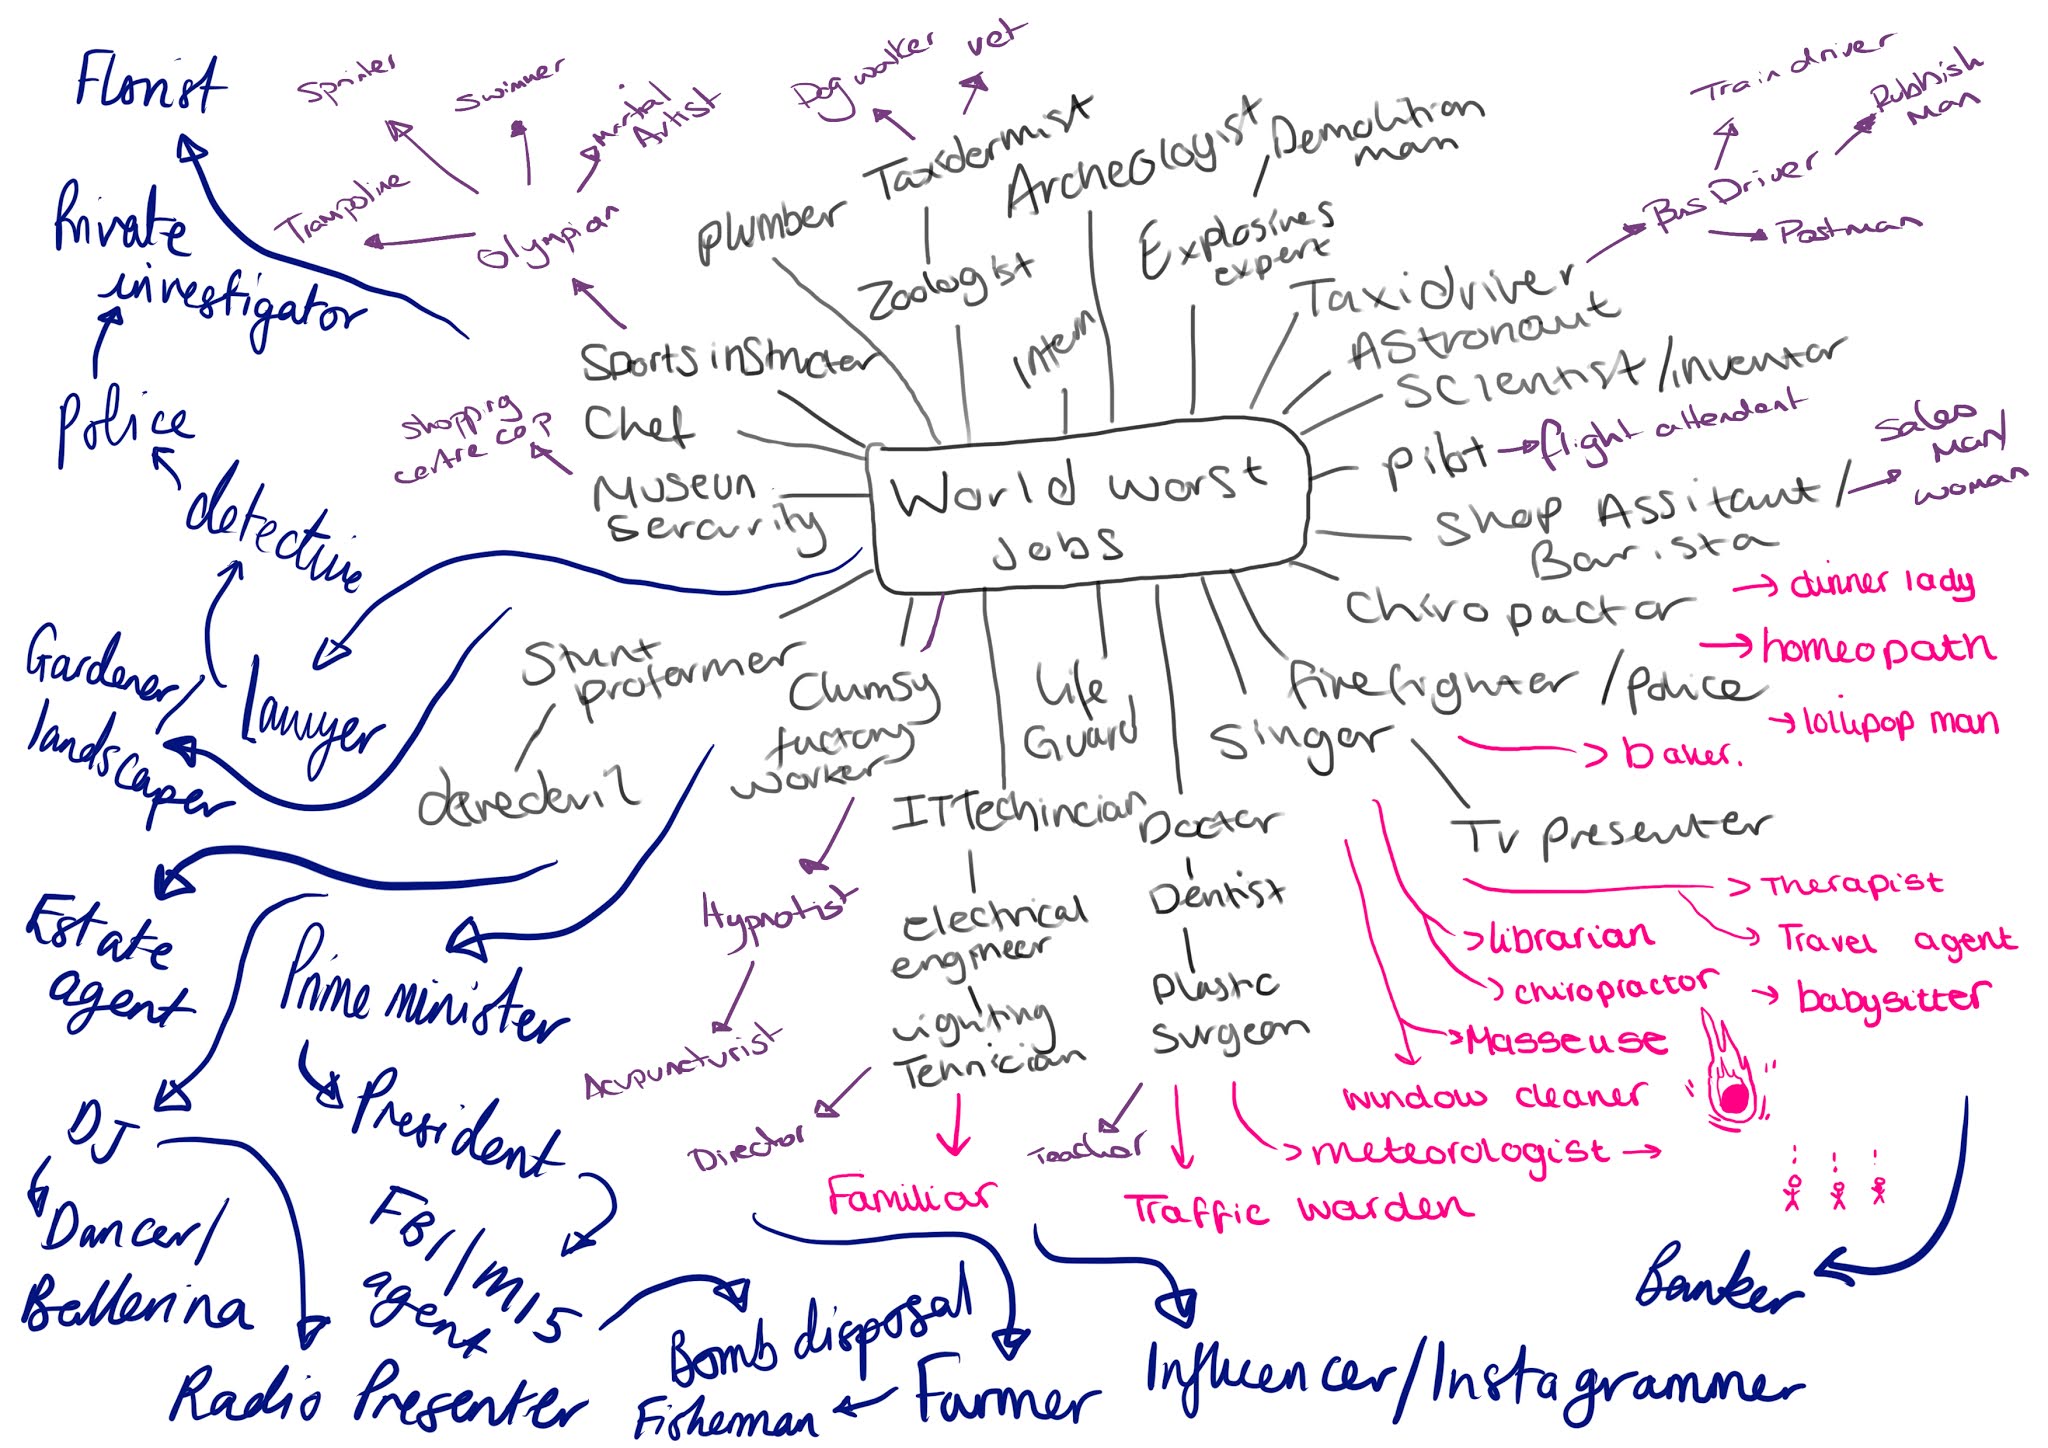 World worst
Jobs
Florist
Private
investigator
Police
detective
Lawyer
Gardener/
landscaper
Estate
agent
Prime minister
President
FBI/MI5
agent
Bomb disposal
DJ
Dancer/
Ballerina
Radio Presenter
Farmer
Fisherman
Influencer/Instagrammer
Banker
Sprinter
Swimmer
Martial
Artist
Trampoline
Olympian
Sports instructer
Chef
shopping
centre cop
Museun
Sercurity
plumber
Dog walker
vet
Taxidermist
Zoologist
Intern
Archeologist
Demolition
man
Explosives
expert
Train driver
Rubbish
Man
Bus Driver
Postman
Taxi driver
Astronaut
Scientist/inventor
Pilot
flight attendent
Shop Assitant/
Barista
Sales
Man/
woman
Chiropactor
dinner lady
homeopath
lollipop man
firefighter/police
baker.
Singer
Tv Presenter
Therapist
Travel agent
librarian
chiropractor
babysitter
Masseuse
window cleaner
meteorologist
Stunt
proformer
daredevil
Clumsy
factory
worker
Hypnotist
Acupuncturist
Life
Guard
IT Techincian
electrical
engineer
Lighting
Tehnician
Director
Familiar
Doctor
Dentist
Plastic
Surgeon
Teacher
Traffic warden